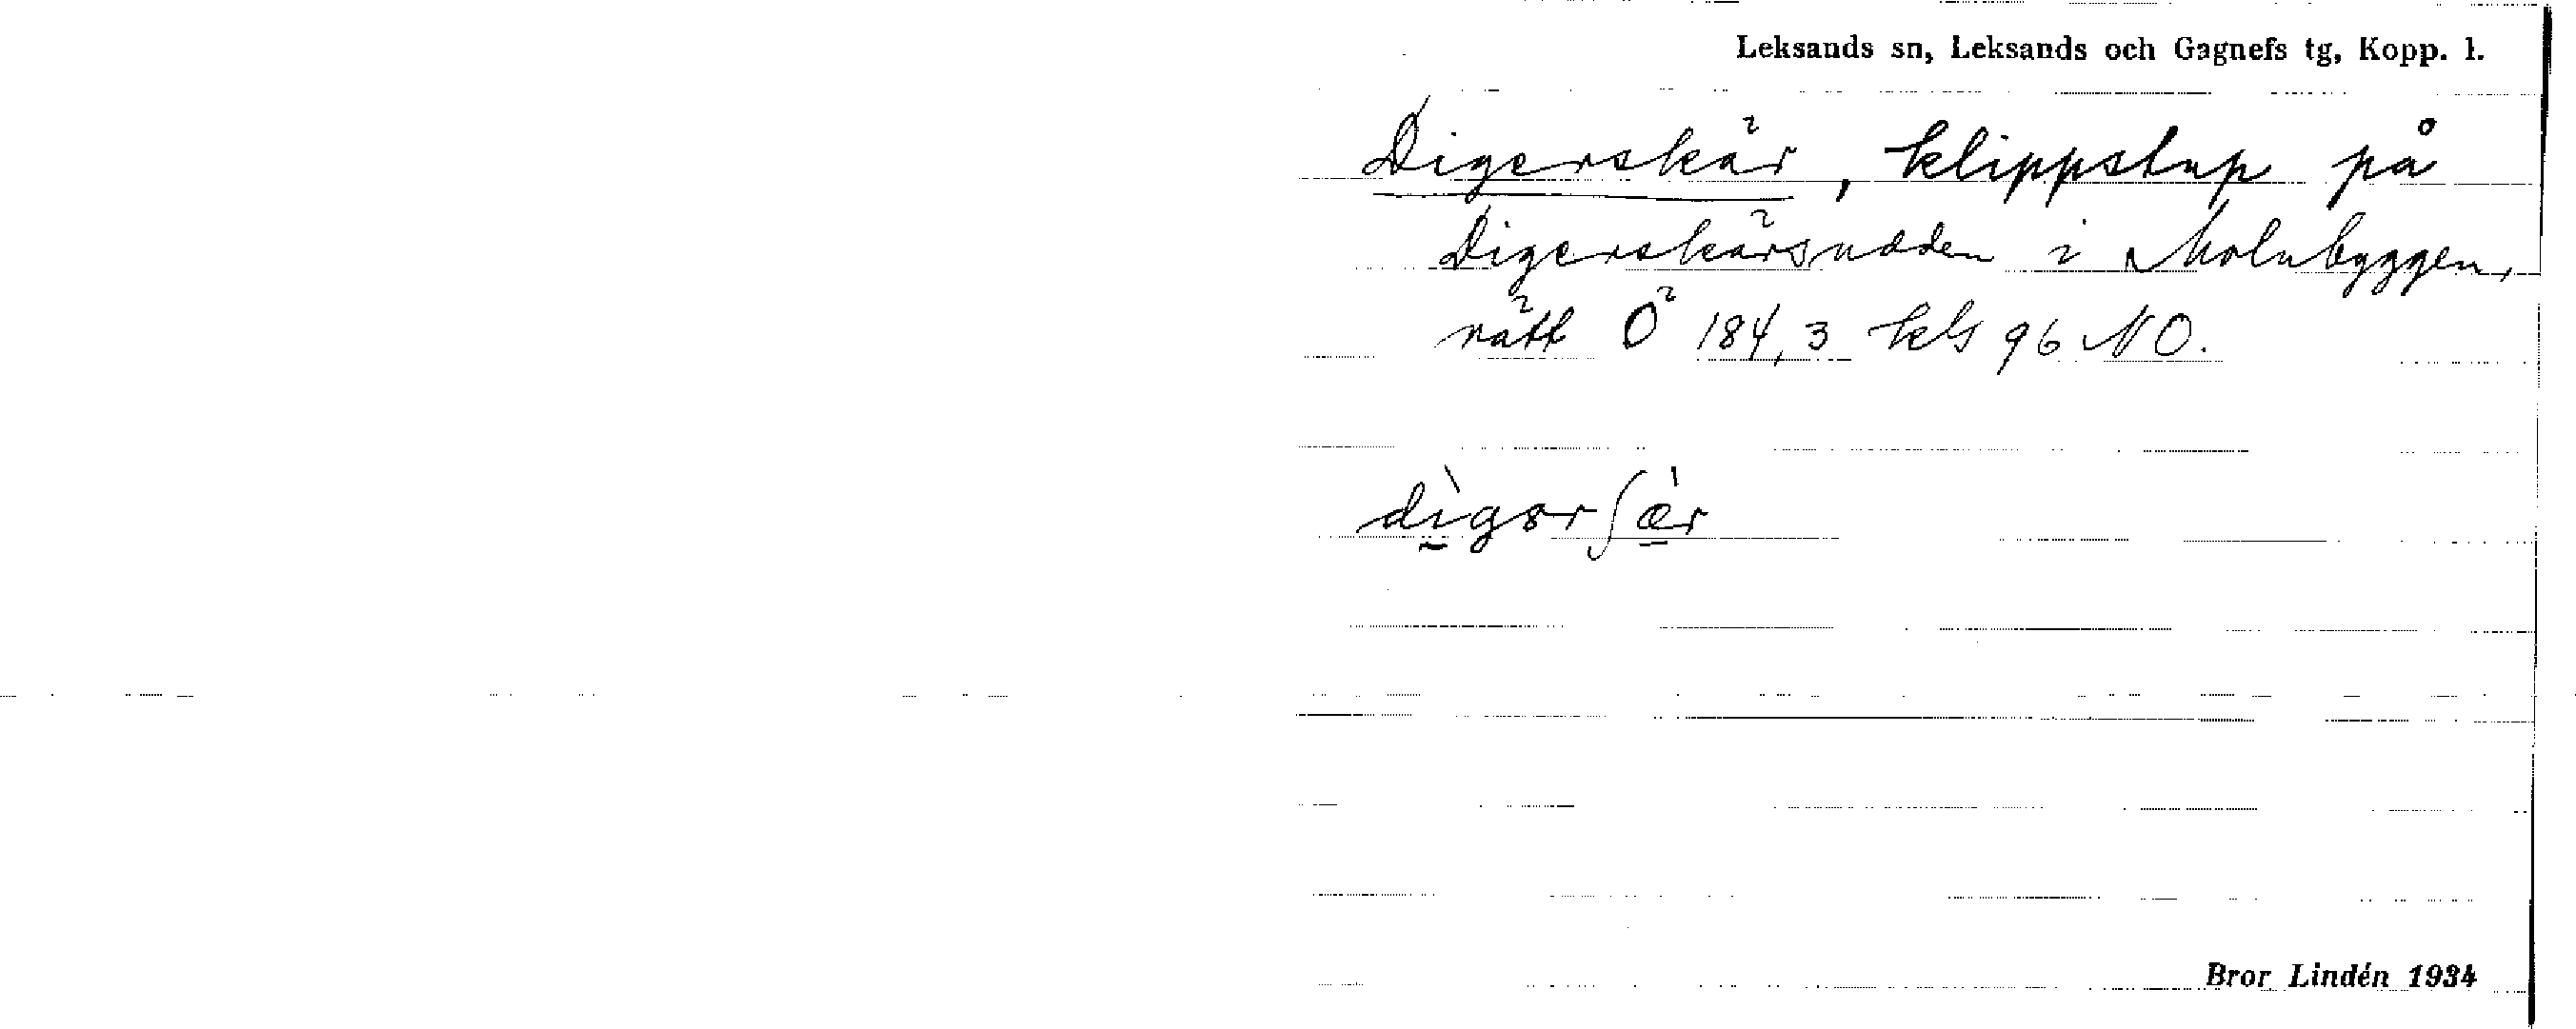 Leksands sn, Leksands och Gagnefs tg, Kopp. l.
Digerskär, klippstup på
Digerskärsudden i Molnbyggen,
rätt Ö 184,3 kls 96 NO.
dìgərʃæ̀r
Bror Lindén 1934